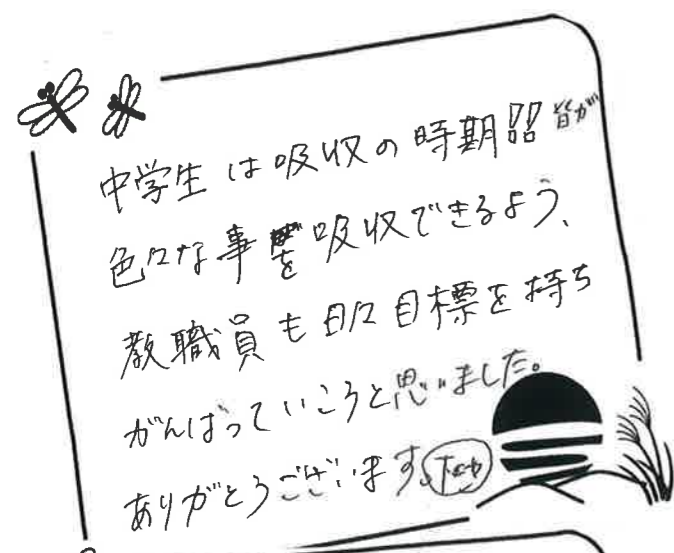 中学生は吸収の時期!! 皆が
色々な事を吸収できるよう、
教職員も日々目標を持ち
がんばっていこうと思いました。
ありがとうございます。